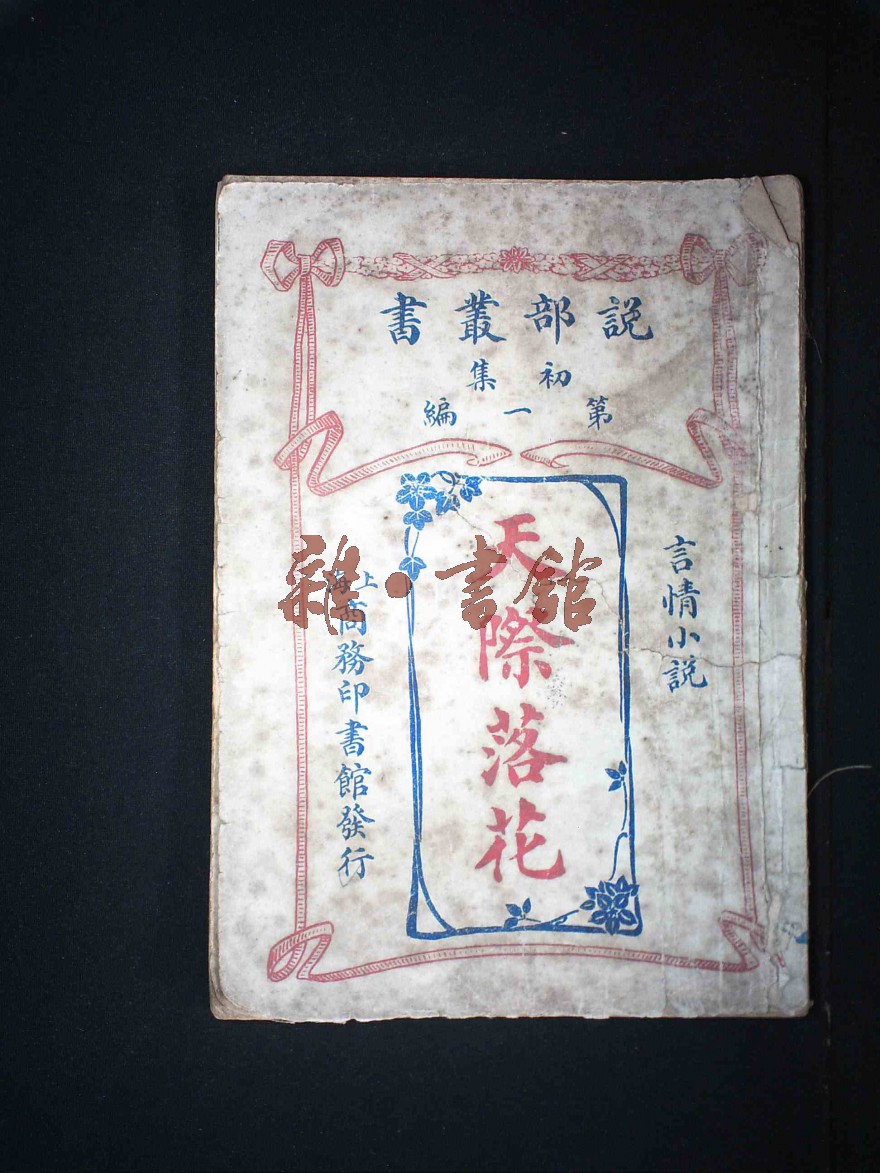 説部叢書
初集
第一編
言情小説
天際落花
上海商務印書館發行
雜·書館